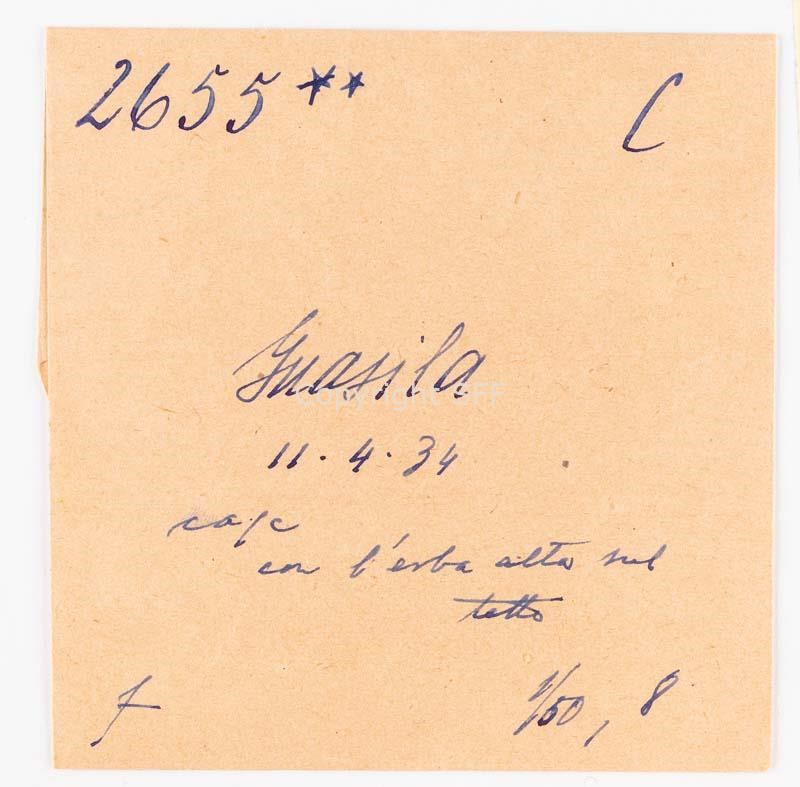 2655 ** C
Guasila
copyright GFF
11.4.34
case
con l'erba alta sul
tetto
f 1/50, 8